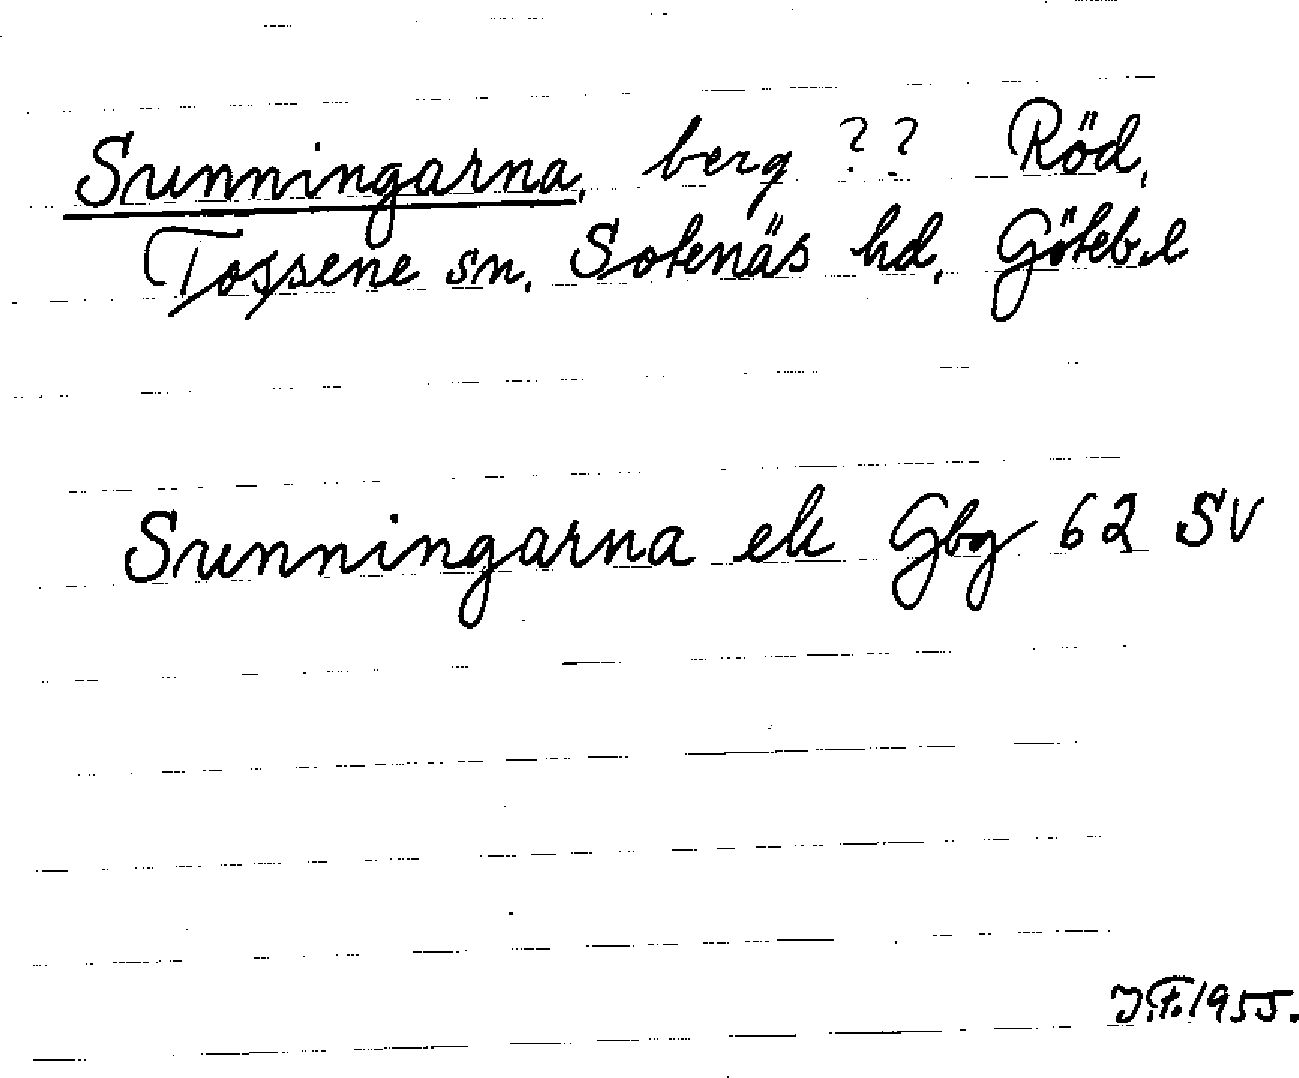 Sunningarna, berg ?? Röd,
Tossene sn, Sotenäs hd, Göteb. l
Sunningarna ek Gbg 62 SV
J.F. 1955.